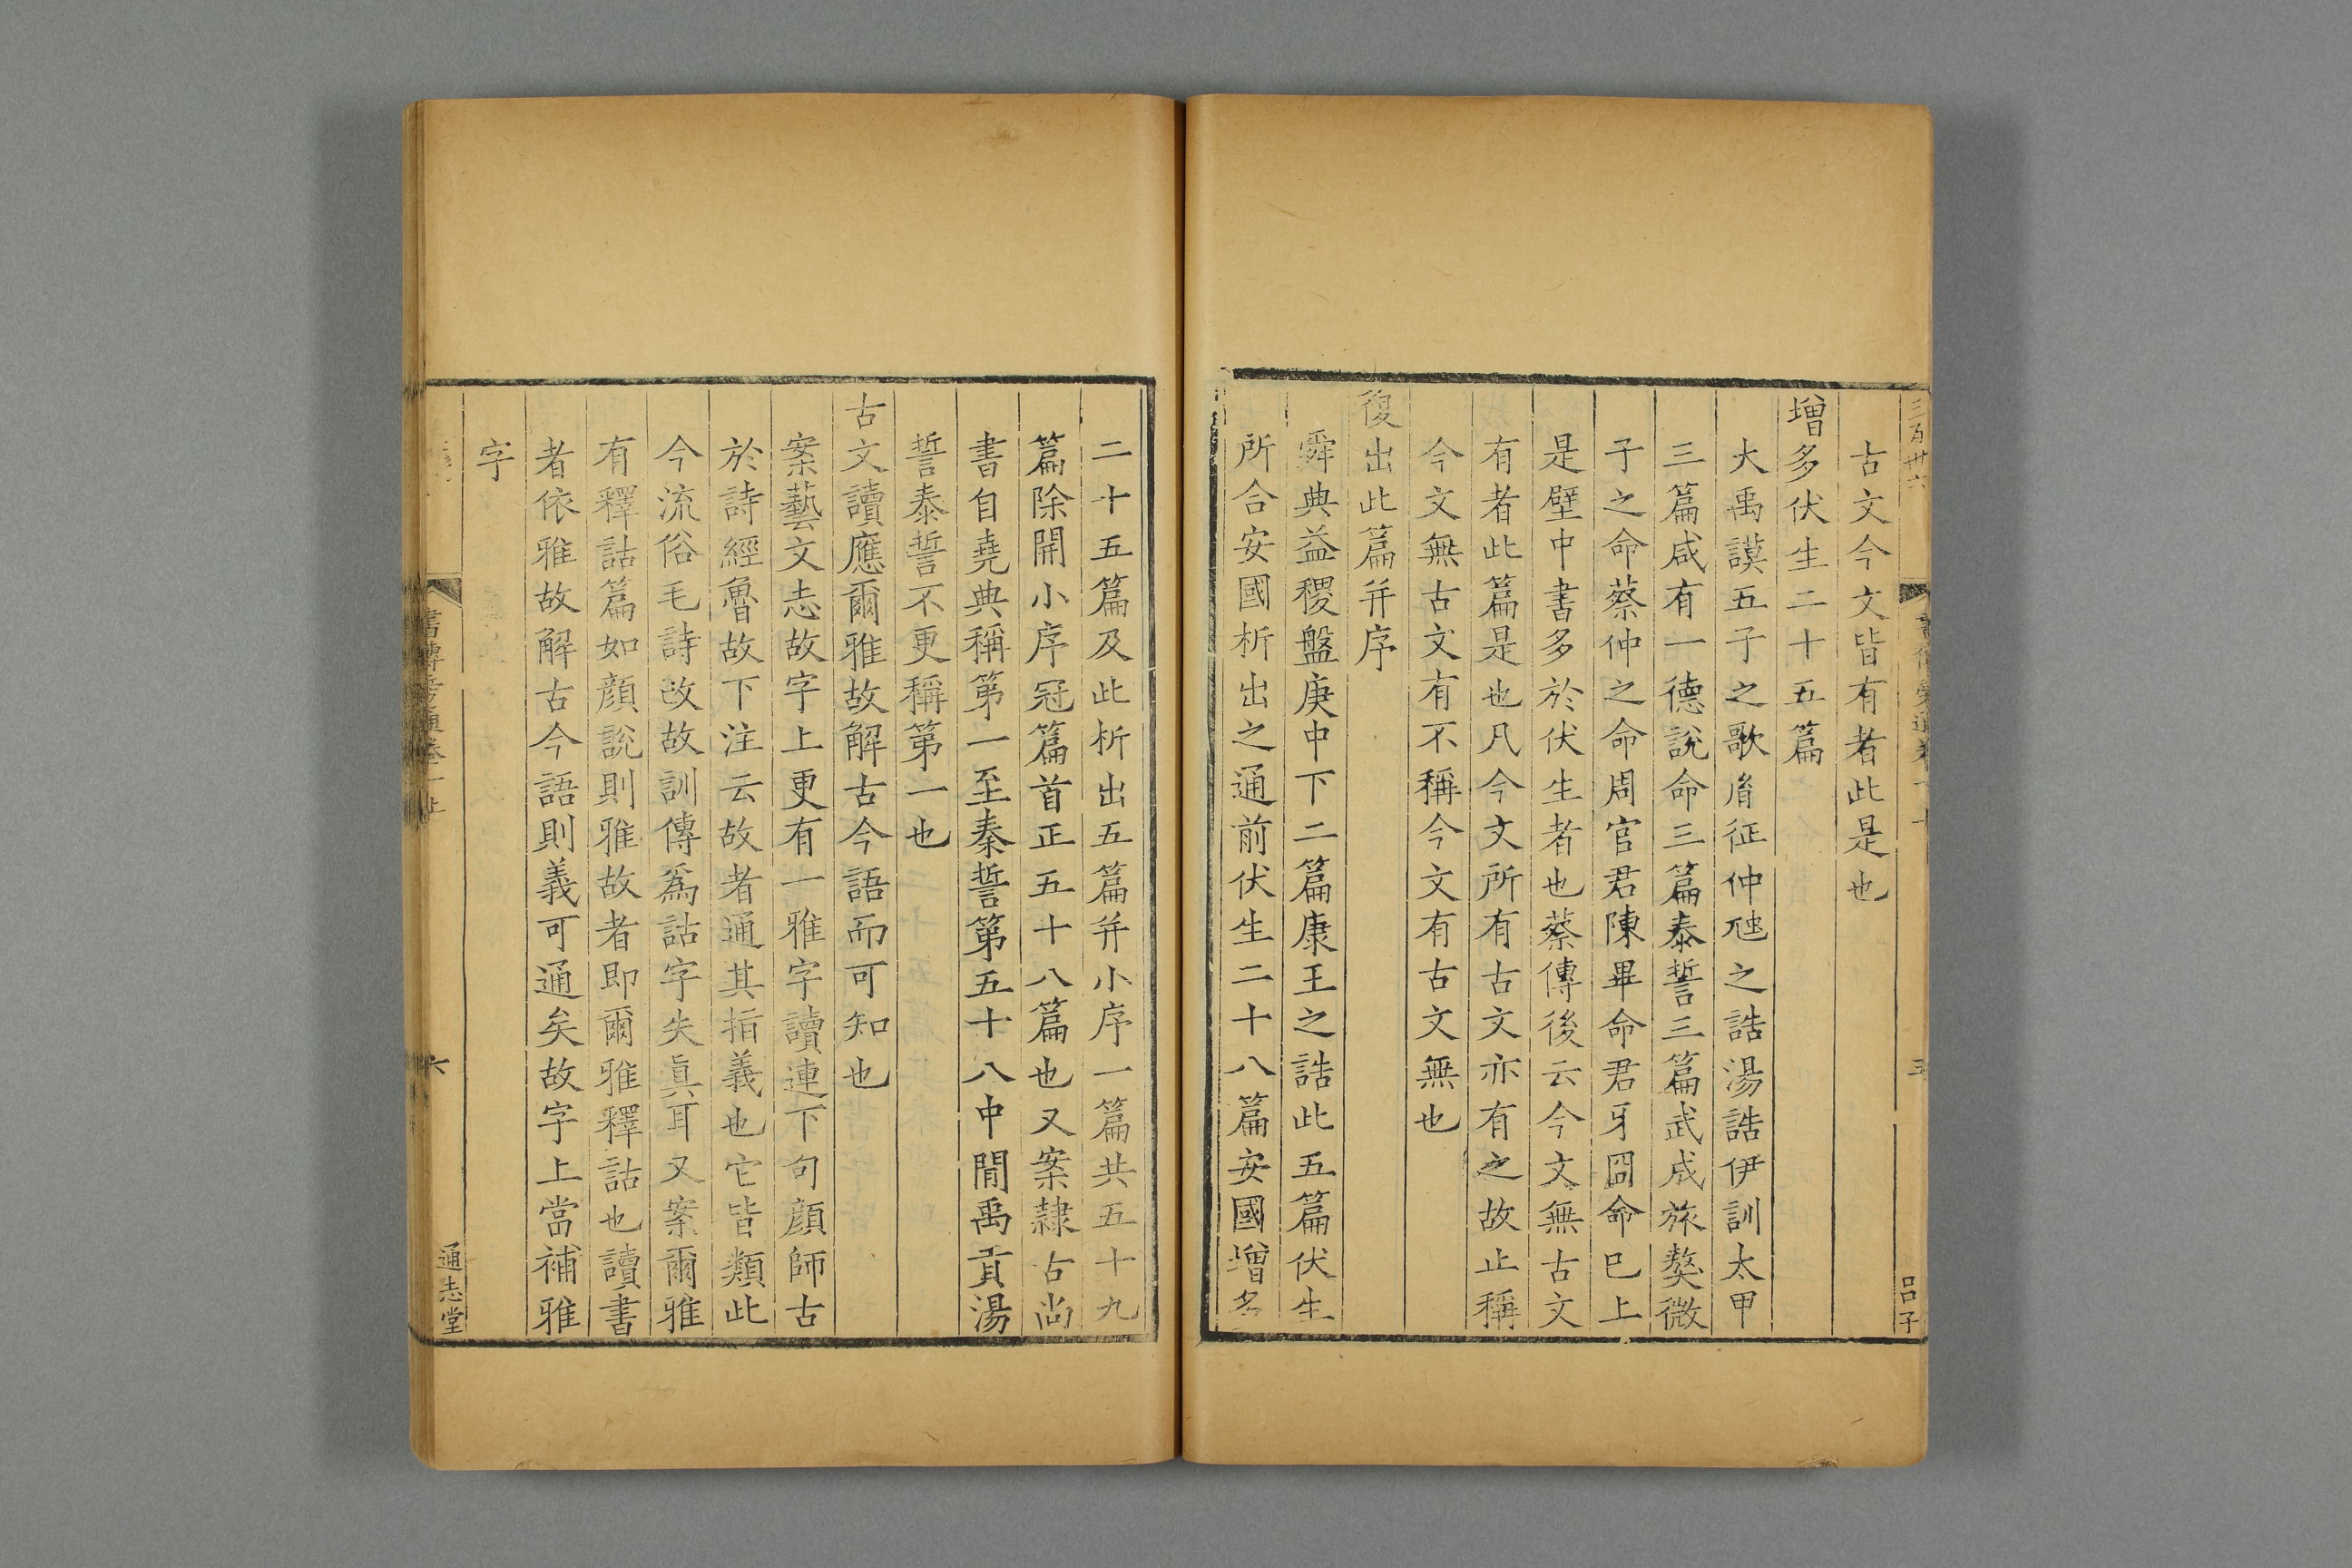 三百卅六
古文今文皆有者此是也
增多伏生二十五篇
大禹謨五子之歌胤征仲虺之誥湯誥伊訓太甲
三篇咸有一德說命三篇泰誓三篇武成旅獒微
子之命蔡仲之命周官君陳畢命君牙冏命已上
是壁中書多於伏生者也蔡傳後云今文無古文
有者此篇是也凡今文所有古文亦有之故止稱
今文無古文有不稱今文有古文無也
復出此篇并序
舜典益稷盤庚中下二篇康王之誥此五篇伏生
所合安國析出之通前伏生二十八篇安國增多
二十五篇及此析出五篇并小序一篇共五十九
篇除開小序冠篇首正五十八篇也又案隸古尚
書自堯典稱第一至秦誓第五十八中間禹貢湯
誓泰誓不更稱第一也
古文讀應爾雅故解古今語而可知也
案藝文志故字上更有一雅字讀連下句顔師古
於詩經魯故下注云故者通其指義也它皆類此
今流俗毛詩改故訓傳爲詁字失眞耳又案爾雅
有釋詁篇如顔說則雅故者即爾雅釋詁也讀書
者依雅故解古今語則義可通矣故字上當補雅
字
書傳旁通卷一上
六
通志堂